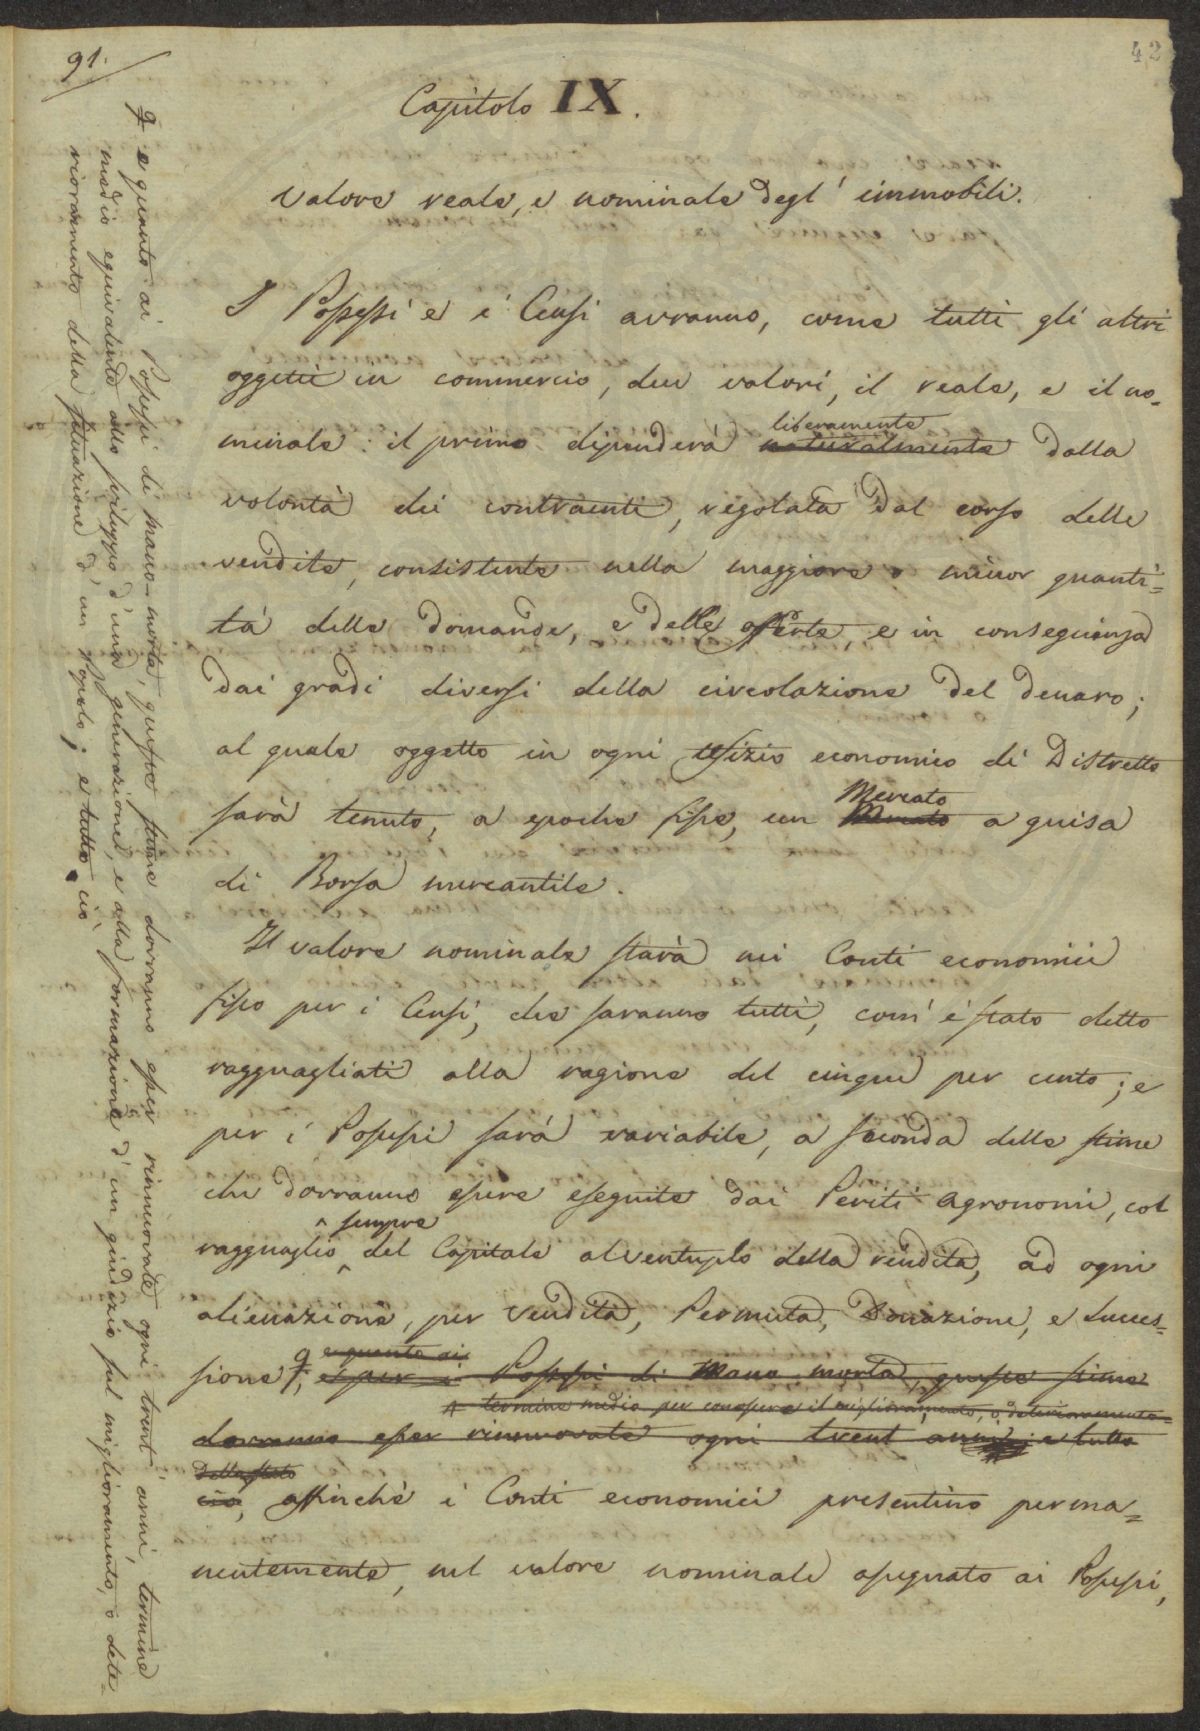 91.
42
Capitolo IX.
Valore reale, e nominale degl' immobili.
I Possessi e i Censi avranno, come tutti gli altri
oggetti in commercio, due valori, il reale, e il no=
minale: il primo dipenderà liberamente naturalmente dalla
volontà dei contraenti, regolata dal corso delle
vendite, consistente nella maggiore o minor quanti=
tà delle domande, e delle offerte, e in conseguenza
dai gradi diversi della circolazione del denaro;
al quale oggetto in ogni Ufizio economico di Distretto
sarà tenuto, a epoche fisse, un Mercato a guisa
di Borsa mercantile.
Il valore nominale starà nei Conti economici
fisso per i Censi, che saranno tutti, com' è stato detto
ragguagliati alla ragione del cinque per cento; e
per i Possessi sarà variabile, a seconda delle stime
che dovranno essere eseguite dai Periti Agronomi, col
ragguaglio sempre del Capitale al ventuplo della rendita, ad ogni
alienazione, per Vendita, Permuta, Donazione, e Succes=
sione; e quanto ai e per i Possessi di Mano morta, queste stime
termine medio per conoscere il miglioramento, o deterioramento
dovranno esser rinnuovate ogni trent' anni; e tutto
dello stato
ciò, affinchè i Conti economici presentino perma=
nentemente, nel valore nominale assegnato ai Possessi,
e quanto ai Possessi di mano-morta, queste stime dovranno esser rinnuovate ogni trent' anni, termine
medio equivalente allo sviluppo d' una generazione, e alla formazione d' un giudizio sul miglioramento, o dete=
rioramento della situazione d' un Popolo; e tutto ciò